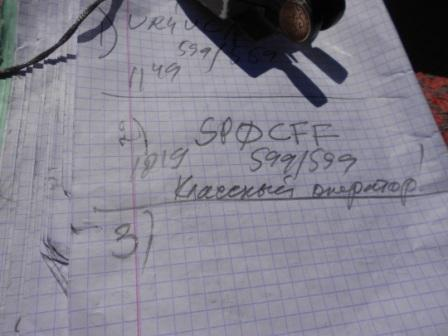 1) UR4U
599/559
11 49
2) SPØCFF
1819 599/599
Классный оператор!
3)